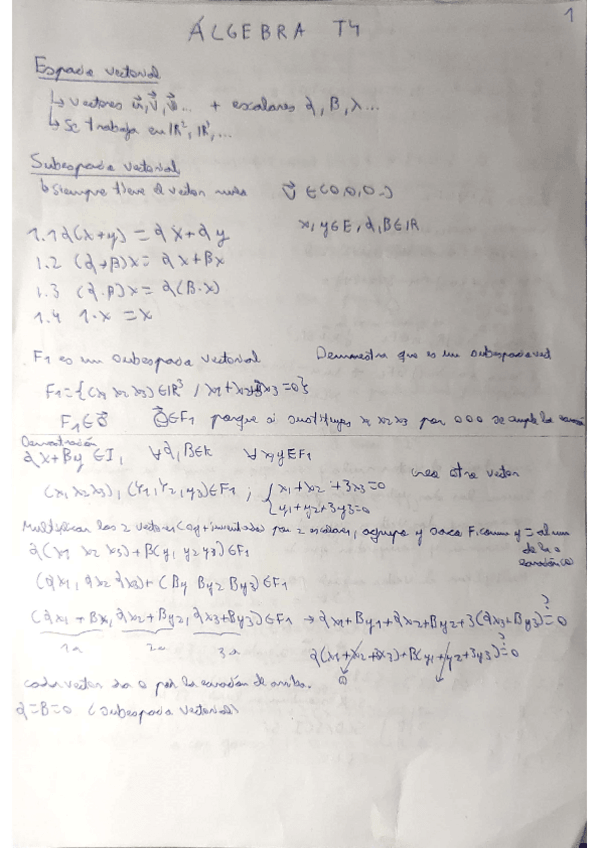 1
ÁLGEBRA T4
Espacio vectorial
↳ vectores u⃗, v⃗, w⃗... + escalares α, β, λ...
↳ Se trabaja en ℝ², ℝ³, ...
Subespacio vectorial
↳ Siempre tiene el vector nulo v⃗ ∈ (0,0,0..)
x, y ∈ E, α, β ∈ ℝ
1.1 α(x+y) = αx + αy
1.2 (α+β)x = αx + βx
1.3 (α·β)x = α(β·x)
1.4 1·x = x
F1 es un subespacio vectorial Demuestra que es un subespacio vect
F1 = {(x1 x2 x3) ∈ ℝ³ / x1+x2+3x3 = 0}
F1 ∈ 0⃗ 0⃗ ∈ F1 porque si sustituyes x1 x2 x3 por 0 0 0 se cumple la
Demostración
αx + βy ∈ F1 ∀α, β ∈ k ∀x, y ∈ F1
crea otro vector
(x1 x2 x3), (y1, y2, y3) ∈ F1 ; { x1+x2+3x3=0
y1+y2+3y3=0
Multiplicar los 2 vectores (x y + inventados) por 2 escalares, agrupa y saca F. común y = al un
de la
ecuación
α(x1 x2 x3) + β(y1 y2 y3) ∈ F1
(αx1, αx2 αx3) + (βy βy2 βy3) ∈ F1
(αx1 + βx, αx2 + βy2, αx3+βy3) ∈ F1 → αx1+βy1+αx2+βy2+3(αx3+βy3) =? 0
1a 2a 3a
α(x1+x2+3x3)+β(y1+y2+3y3) =? 0
0
cada vector da 0 por la ecuación de arriba.
α=β=0 (subespacio vectorial)